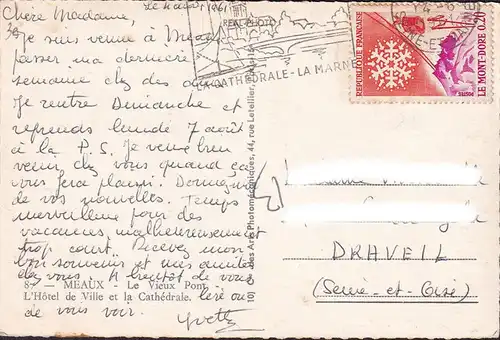 Le 4 août 1961
Chère Madame,
Je suis venue à Meaux
passer ma dernière
semaine chez des
Je rentre Dimanche et
reprends lundi 7 août
à la P. S. Je veux bien
venir chez vous quand ça
vous fera plaisir. Donnez moi
de vos nouvelles. Temps
merveilleux pour des
vacances, malheureusement
trop court. Recevez mon
bon souvenir et mes amitiés
chez vous. A bientôt de vous
lire ou
de vous voir.
Yvette
8 — MEAUX - Le Vieux Pont
L'Hôtel de Ville et la Cathédrale.
REAL PHOTO
des Arts Photomécaniques, 44, rue Letellier,
LA CATHÉDRALE - LA MARNE
REPUBLIQUE FRANÇAISE
LE MONT-DORE 0,20
DRAVEIL
(Seine-et-Oise)